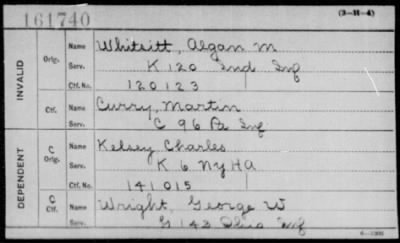 161740
(3-H-4)
INVALID
Orig.
Name Whitsitt, Algan M
Serv. K 120 Ind Inf
Ctf. No. 120123
Ctf.
Name Curry, Martin
Serv. C 96 Pa Inf
DEPENDENT
C Orig.
Name Kelsey Charles
Serv. K 6 NY HA
Ctf. No. 141015
C Ctf.
Name Wright, George W
Serv. G 143 Ohio Inf